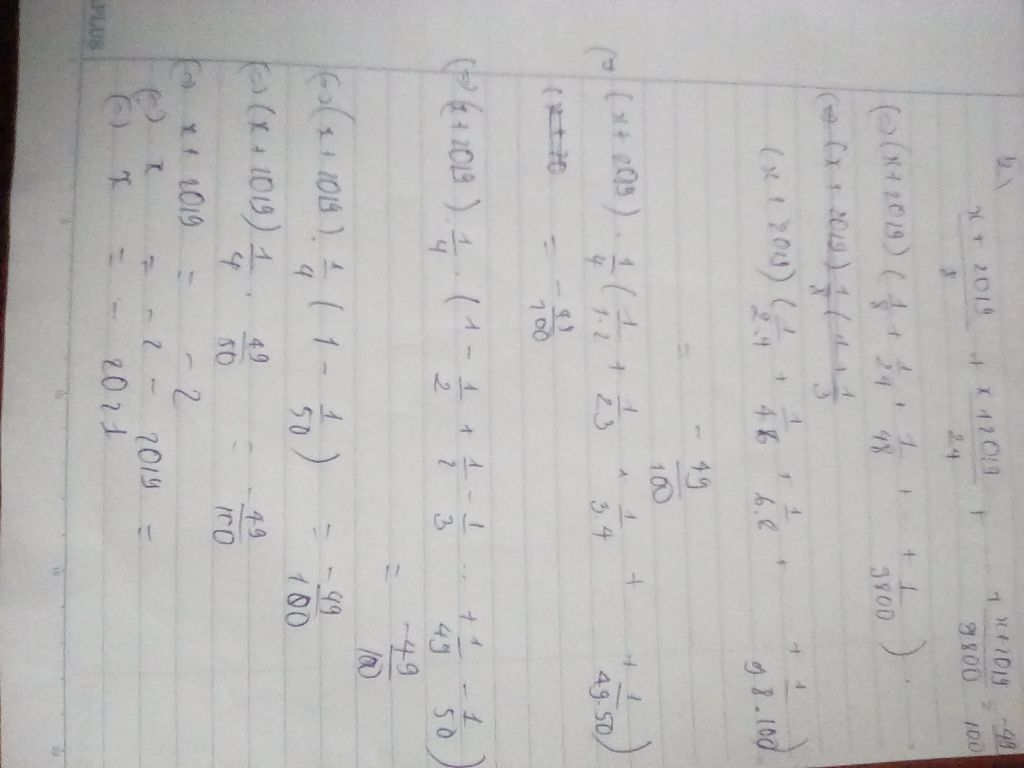 b,) x + 2019 / 8 + x + 2019 / 24 + + x + 2019 / 9800 = -49 / 100
(=) (x + 2019) ( 1/8 + 1/24 + 1/48 + + 1/9800 ) .
(x + 2019) ( 1/2.4 + 1/4.6 + 1/6.8 + + 1/98.100 )
= - 49/100
(=) (x + 2019) . 1/4 ( 1/1.2 + 1/2.3 + 1/3.4 + + 1/49.50 )
= - 49/100
(=) (x + 2019) . 1/4 . ( 1 - 1/2 + 1/2 - 1/3 ... + 1/49 - 1/50 )
= -49/100
(=) (x + 2019) . 1/4 ( 1 - 1/50 ) = -49/100
(=) (x + 2019) 1/4 . 49/50 = -49/100
(=) x + 2019 = - 2
(=) x = - 2 - 2019 =
(=) x = - 2021
PLUS